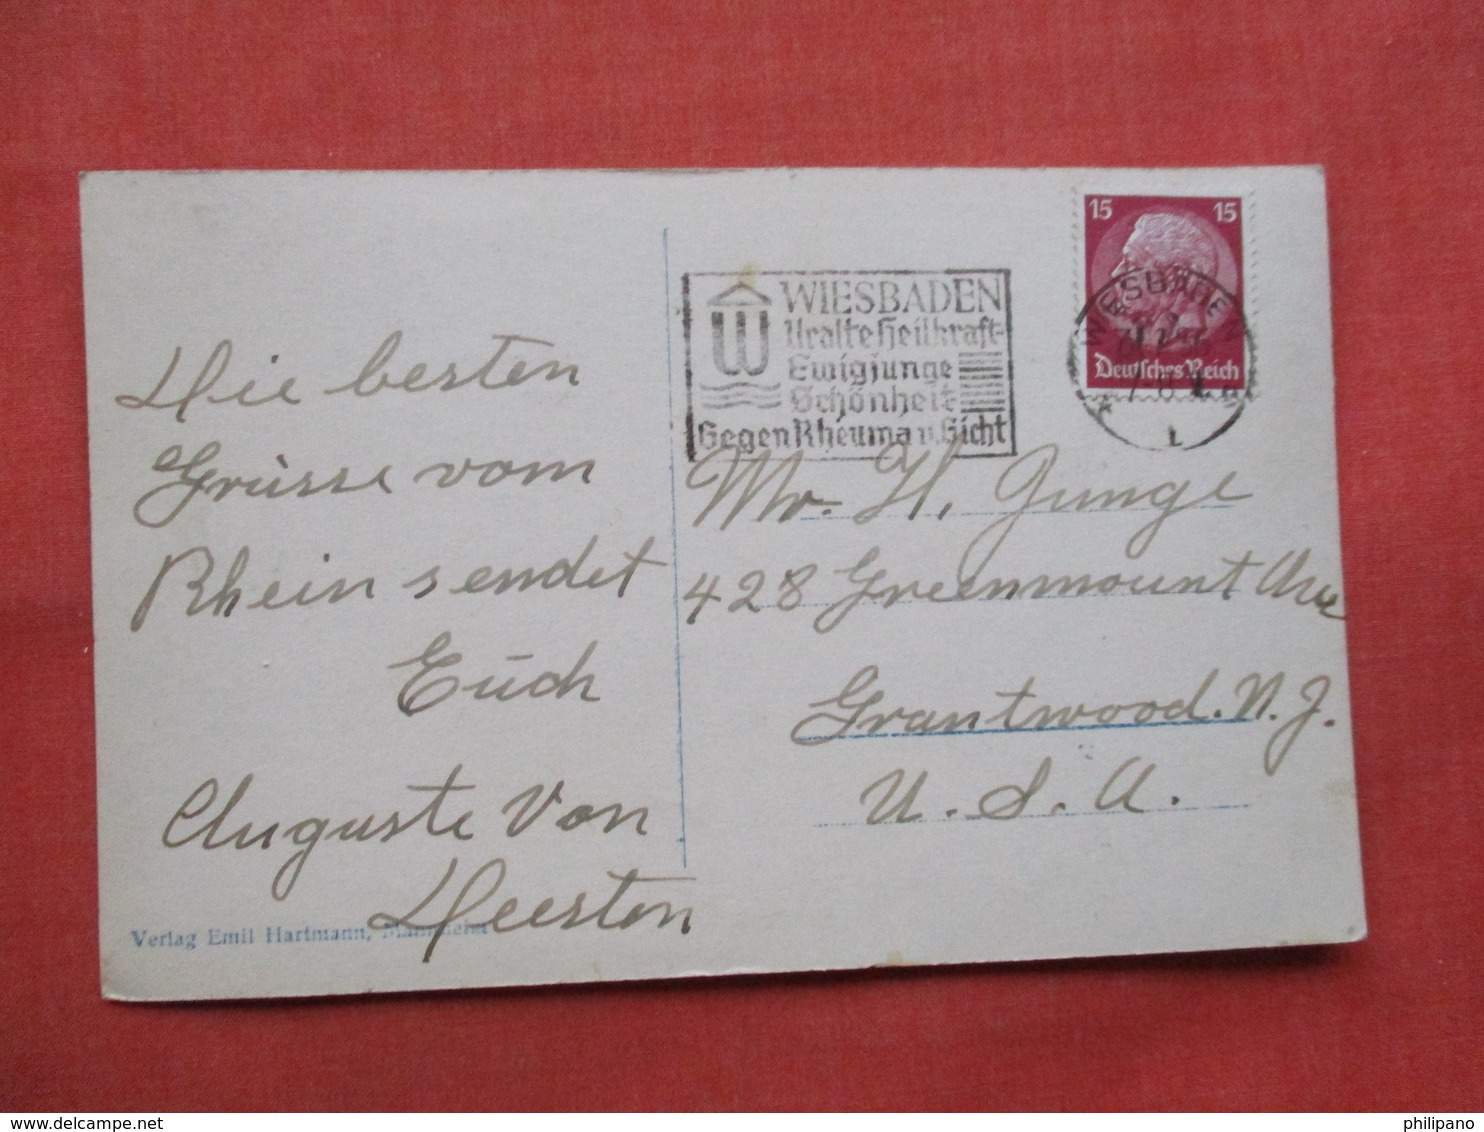 Die besten
Grüsse vom
Rhein sendet
Euch
Auguste Von
Heesten
Verlag Emil Hartmann, Mannheim
WIESBADEN
Uralte Heilkraft-
Ewigjunge
Schönheit
Gegen Rheuma u. Gicht
15 15
Deutsches Reich
WIESBADEN
Mr. H. Junge
428 Greenmount Ave
Grantwood. N. J.
U. S. A.
www.delcampe.net
philipano